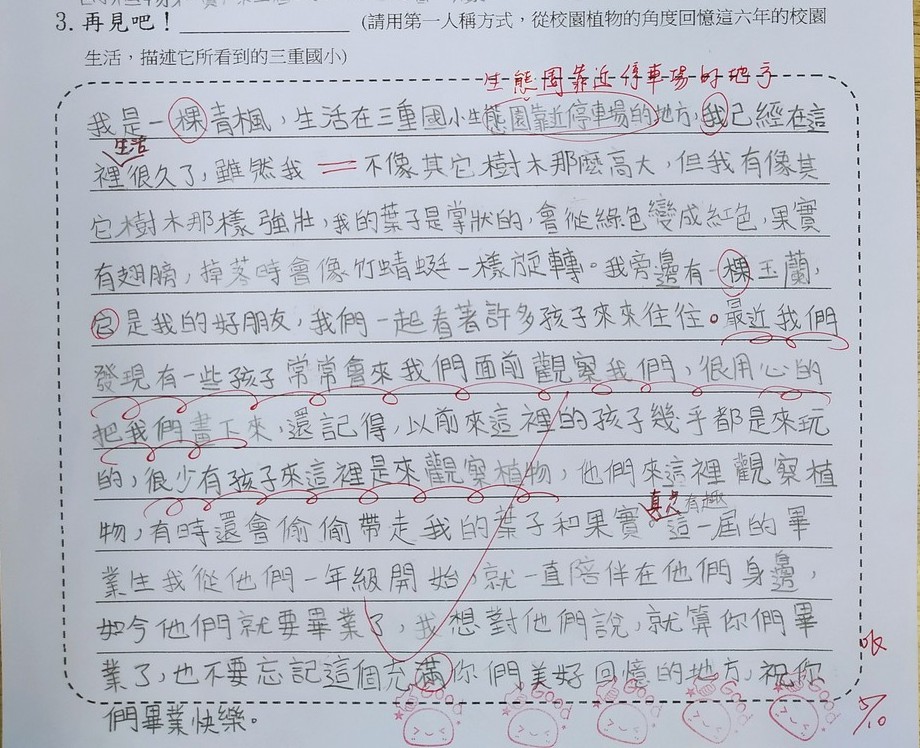 3. 再見吧！ (請用第一人稱方式，從校園植物的角度回憶這六年的校園
生活，描述它所看到的三重國小)
生態園靠近停車場的地方
我是一棵青楓，生活在三重國小生態園靠近停車場的地方，我已經在這
生活
裡很久了，雖然我 不像其它樹木那麼高大，但我有像其
它樹木那樣強壯，我的葉子是掌狀的，會從綠色變成紅色，果實
有翅膀，掉落時會像竹蜻蜓一樣旋轉。我旁邊有一棵玉蘭，
它是我的好朋友，我們一起看著許多孩子來來往往。最近我們
發現有一些孩子常常會來我們面前觀察我們，很用心的
把我們畫下來，還記得，以前來這裡的孩子幾乎都是來玩
的，很少有孩子來這裡是來觀察植物，他們來這裡觀察植
真是有趣
物，有時還會偷偷帶走我的葉子和果實。這一屆的畢
業生我從他們一年級開始，就一直陪伴在他們身邊，
如今他們就要畢業了，我想對他們說，就算你們畢
業了，也不要忘記這個充滿你們美好回憶的地方，祝你
們畢業快樂。
Good
Good
Good
Good
Good
5/10